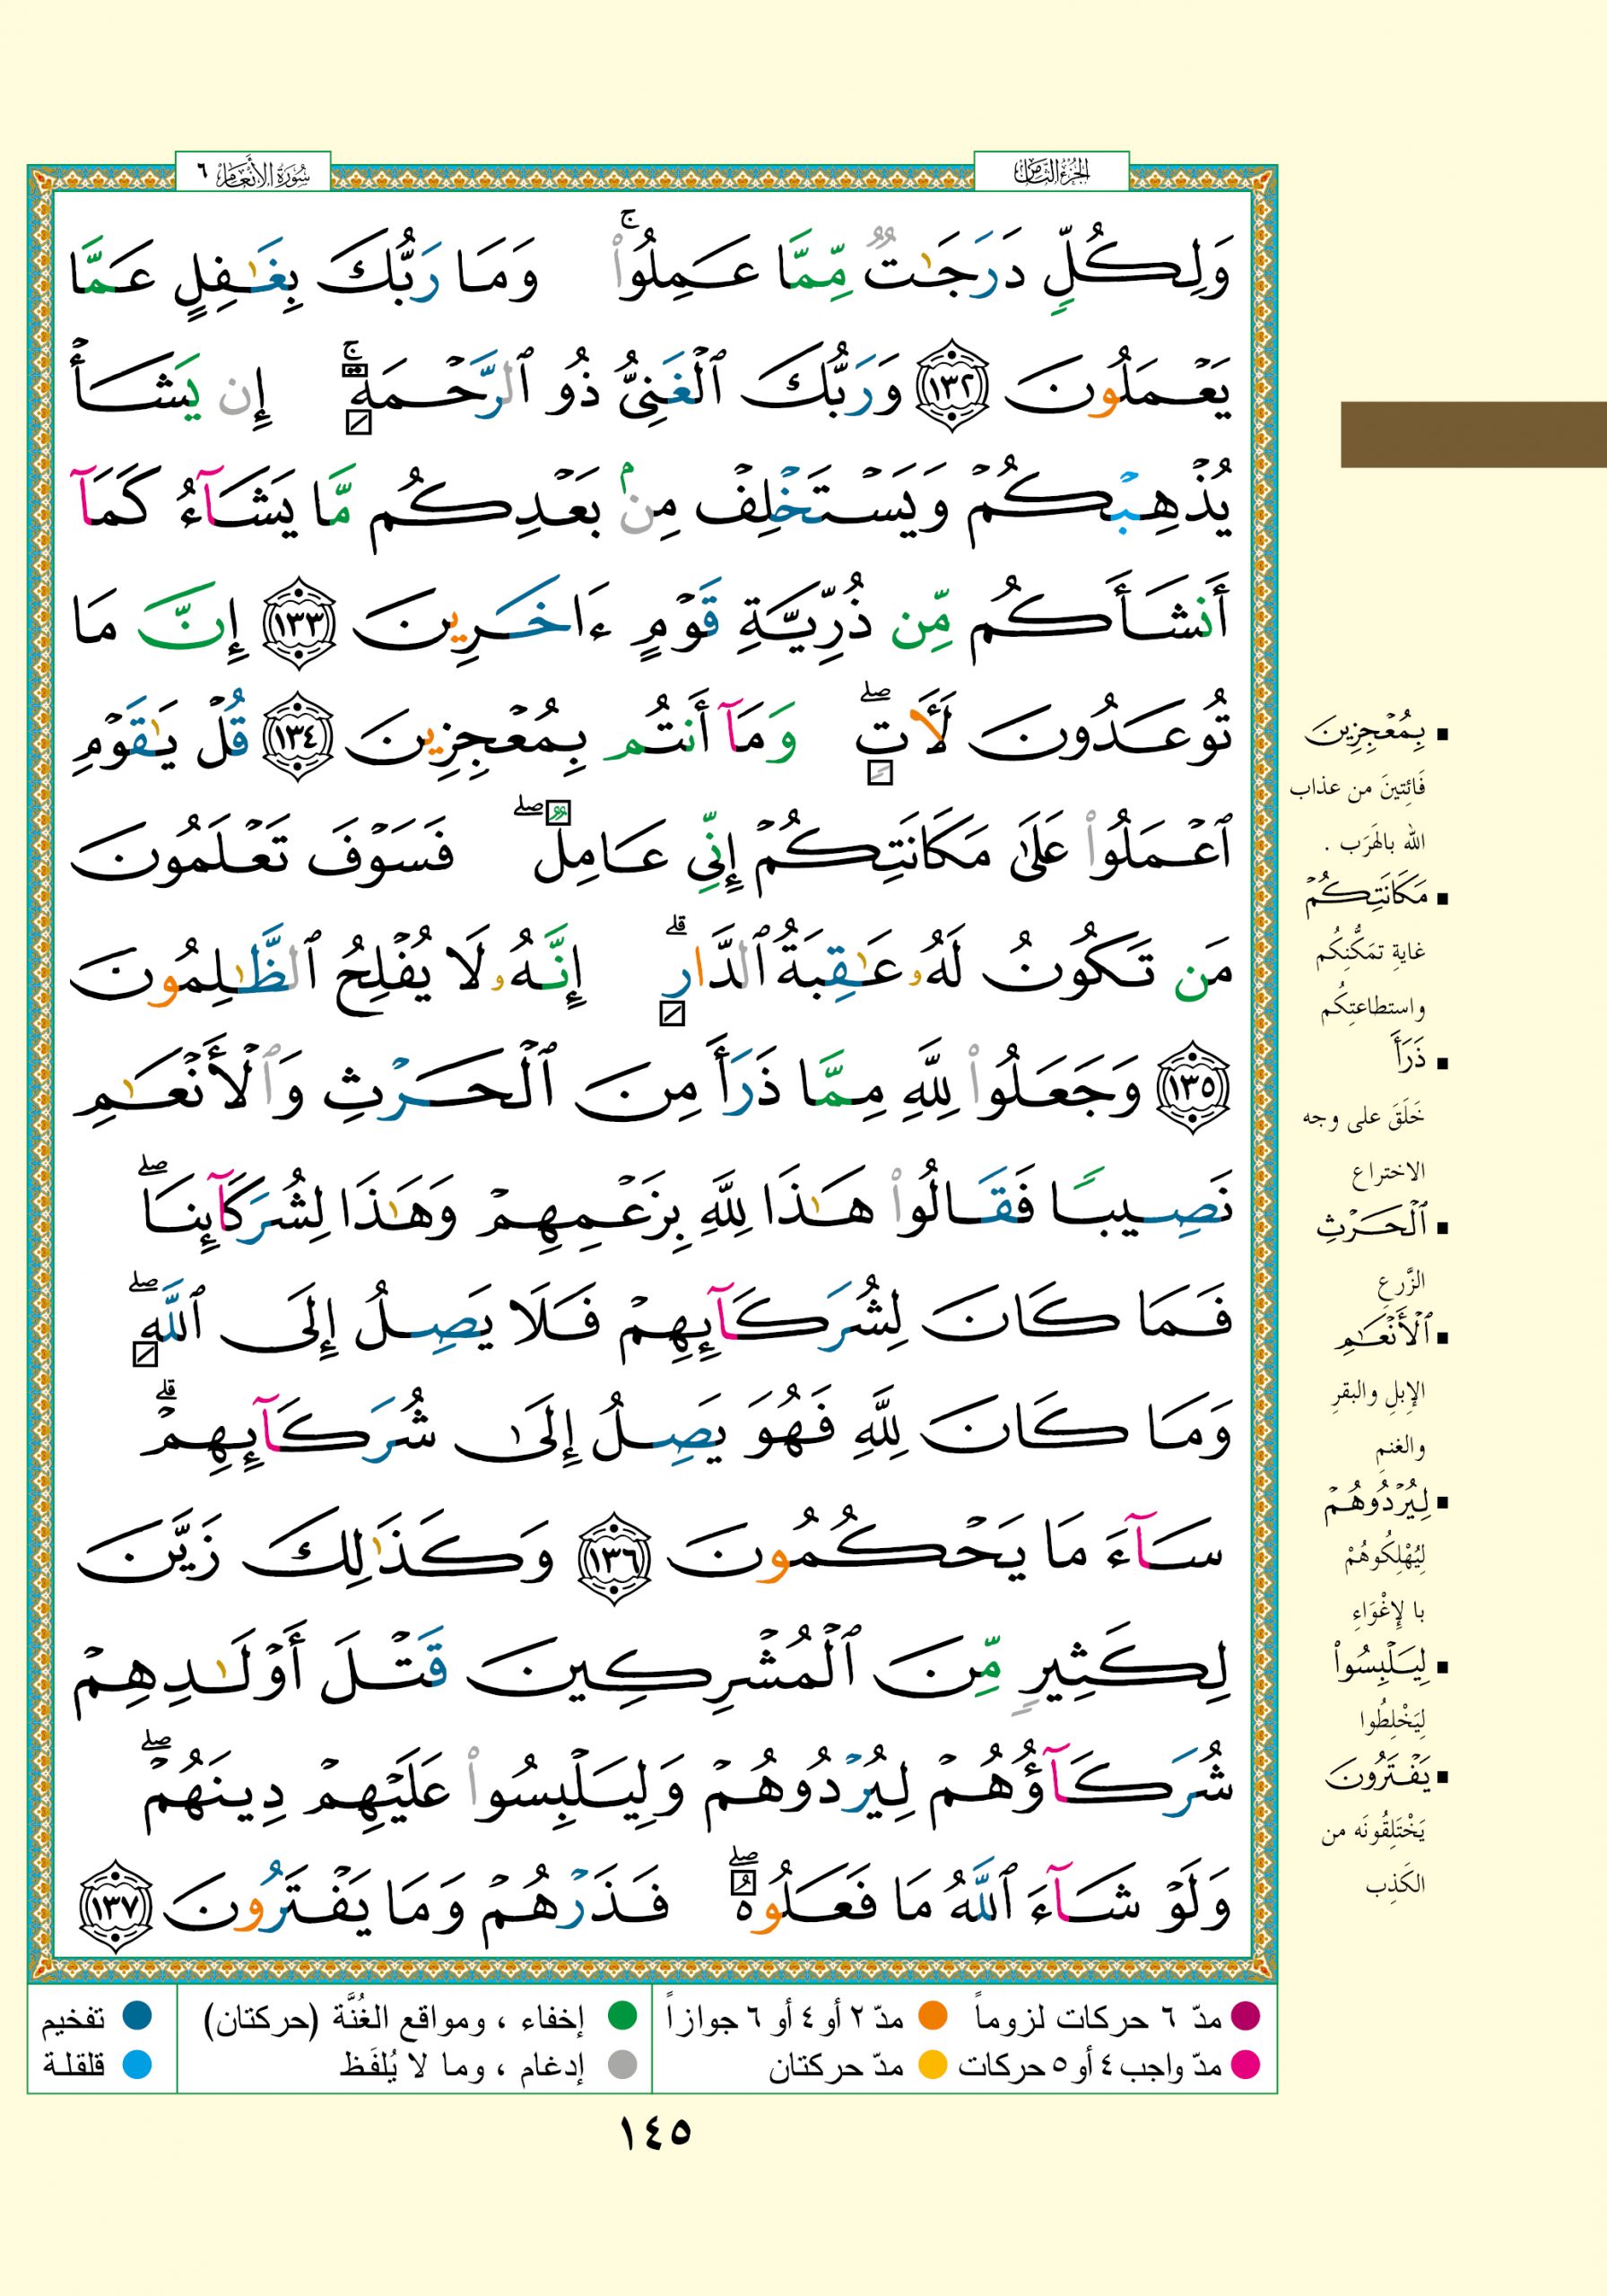 الجزء الثامن
سُورَةُ الأَنْعَام ٦
وَلِكُلٍّ دَرَجَٰتٌ مِّمَّا عَمِلُوا۟ ۚ وَمَا رَبُّكَ بِغَٰفِلٍ عَمَّا
يَعْمَلُونَ ١٣٢ وَرَبُّكَ ٱلْغَنِىُّ ذُو ٱلرَّحْمَةِ ۚ إِن يَشَأْ
يُذْهِبْكُمْ وَيَسْتَخْلِفْ مِنۢ بَعْدِكُم مَّا يَشَآءُ كَمَآ
أَنشَأَكُم مِّن ذُرِّيَّةِ قَوْمٍ ءَاخَرِينَ ١٣٣ إِنَّ مَا
تُوعَدُونَ لَأَتٍ ۖ وَمَآ أَنتُم بِمُعْجِزِينَ ١٣٤ قُلْ يَٰقَوْمِ
ٱعْمَلُوا۟ عَلَىٰ مَكَانَتِكُمْ إِنِّى عَامِلٌ ۖ فَسَوْفَ تَعْلَمُونَ
مَن تَكُونُ لَهُۥ عَٰقِبَةُ ٱلدَّارِ ۗ إِنَّهُۥ لَا يُفْلِحُ ٱلظَّٰلِمُونَ
١٣٥ وَجَعَلُوا۟ لِلَّهِ مِمَّا ذَرَأَ مِنَ ٱلْحَرْثِ وَٱلْأَنْعَٰمِ
نَصِيبًا فَقَالُوا۟ هَٰذَا لِلَّهِ بِزَعْمِهِمْ وَهَٰذَا لِشُرَكَآئِنَا ۖ
فَمَا كَانَ لِشُرَكَآئِهِمْ فَلَا يَصِلُ إِلَى ٱللَّهِ ۖ
وَمَا كَانَ لِلَّهِ فَهُوَ يَصِلُ إِلَىٰ شُرَكَآئِهِمْ ۗ
سَآءَ مَا يَحْكُمُونَ ١٣٦ وَكَذَٰلِكَ زَيَّنَ
لِكَثِيرٍ مِّنَ ٱلْمُشْرِكِينَ قَتْلَ أَوْلَٰدِهِمْ
شُرَكَآؤُهُمْ لِيُرْدُوهُمْ وَلِيَلْبِسُوا۟ عَلَيْهِمْ دِينَهُمْ ۖ
وَلَوْ شَآءَ ٱللَّهُ مَا فَعَلُوهُ ۖ فَذَرْهُمْ وَمَا يَفْتَرُونَ ١٣٧
بِمُعْجِزِينَ
فَائِتينَ من عذاب
الله بالهَرَب .
مَكَانَتِكُمْ
غايةِ تمَكُّنِكُم
واستطاعتِكُم
ذَرَأَ
خَلَقَ على وجه
الاختراع
ٱلْحَرْثِ
الزَّرعِ
ٱلْأَنْعَٰمِ
الإبلِ والبقرِ
والغنمِ
لِيُرْدُوهُمْ
لِيُهْلِكُوهُمْ
با لإِغْوَاءِ
لِيَلْبِسُوا۟
لِيَخْلِطُوا
يَفْتَرُونَ
يَخْتَلِقُونَه من
الكَذِب
مدّ ٦ حركات لزوماً
مدّ ٢ أو ٤ أو ٦ جوازاً
إخفاء ، ومواقع الغُنَّة (حركتان)
تفخيم
مدّ واجب ٤ أو ٥ حركات
مدّ حركتان
إدغام ، وما لا يُلفَظ
قلقلة
١٤٥